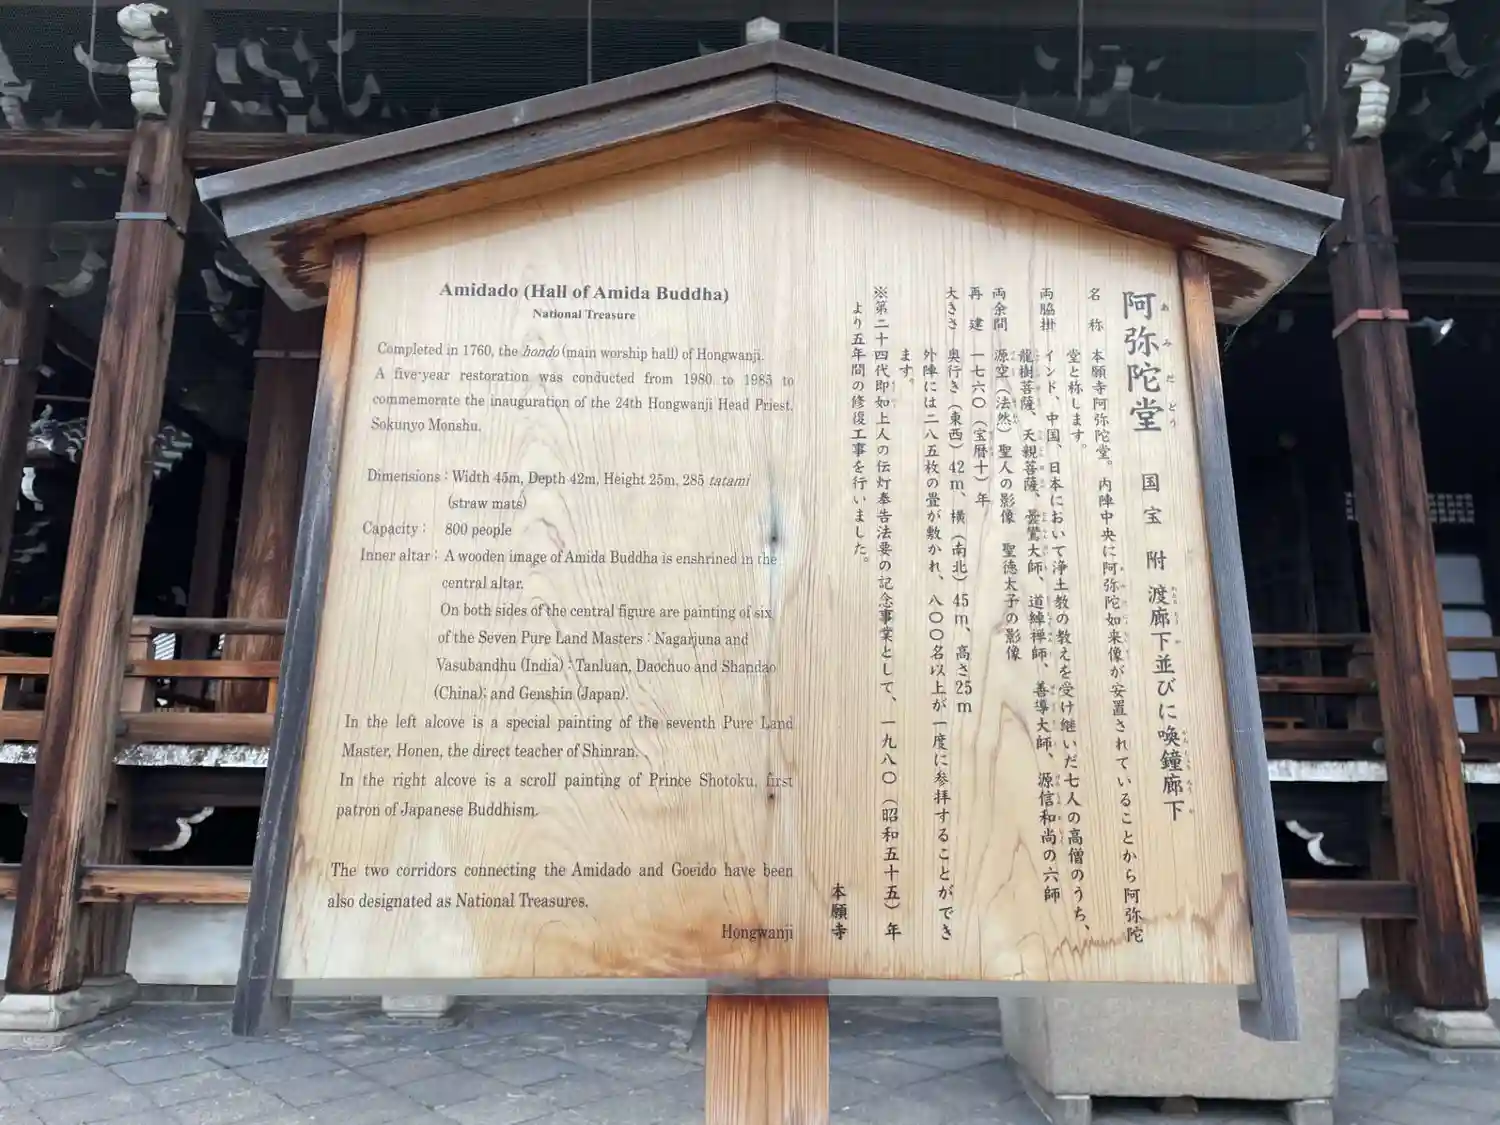 Amidado (Hall of Amida Buddha)
National Treasure
Completed in 1760, the hondo (main worship hall) of Hongwanji.
A five-year restoration was conducted from 1980 to 1985 to
commemorate the inauguration of the 24th Hongwanji Head Priest,
Sokunyo Monshu.
Dimensions : Width 45m, Depth 42m, Height 25m, 285 tatami
(straw mats)
Capacity : 800 people
Inner altar : A wooden image of Amida Buddha is enshrined in the
central altar.
On both sides of the central figure are painting of six
of the Seven Pure Land Masters : Nagarjuna and
Vasubandhu (India) ; Tanluan, Daochuo and Shandao
(China); and Genshin (Japan).
In the left alcove is a special painting of the seventh Pure Land
Master, Honen, the direct teacher of Shinran.
In the right alcove is a scroll painting of Prince Shotoku, first
patron of Japanese Buddhism.
The two corridors connecting the Amidado and Goeido have been
also designated as National Treasures.
Hongwanji
阿弥陀堂 国宝 附 渡廊下並びに喚鐘廊下
名称 本願寺阿弥陀堂。内陣中央に阿弥陀如来像が安置されていることから阿弥陀
堂と称します。
両脇掛 インド、中国、日本において浄土教の教えを受け継いだ七人の高僧のうち、
龍樹菩薩、天親菩薩、曇鸞大師、道綽禅師、善導大師、源信和尚の六師
両余間 源空（法然）聖人の影像 聖徳太子の影像
再建 一七六〇（宝暦十）年
大きさ 奥行き（東西）42m、横（南北）45m、高さ25m
外陣には二八五枚の畳が敷かれ、八〇〇名以上が一度に参拝することができ
ます。
※第二十四代即如上人の伝灯奉告法要の記念事業として、一九八〇（昭和五十五）年
より五年間の修復工事を行いました。
本願寺